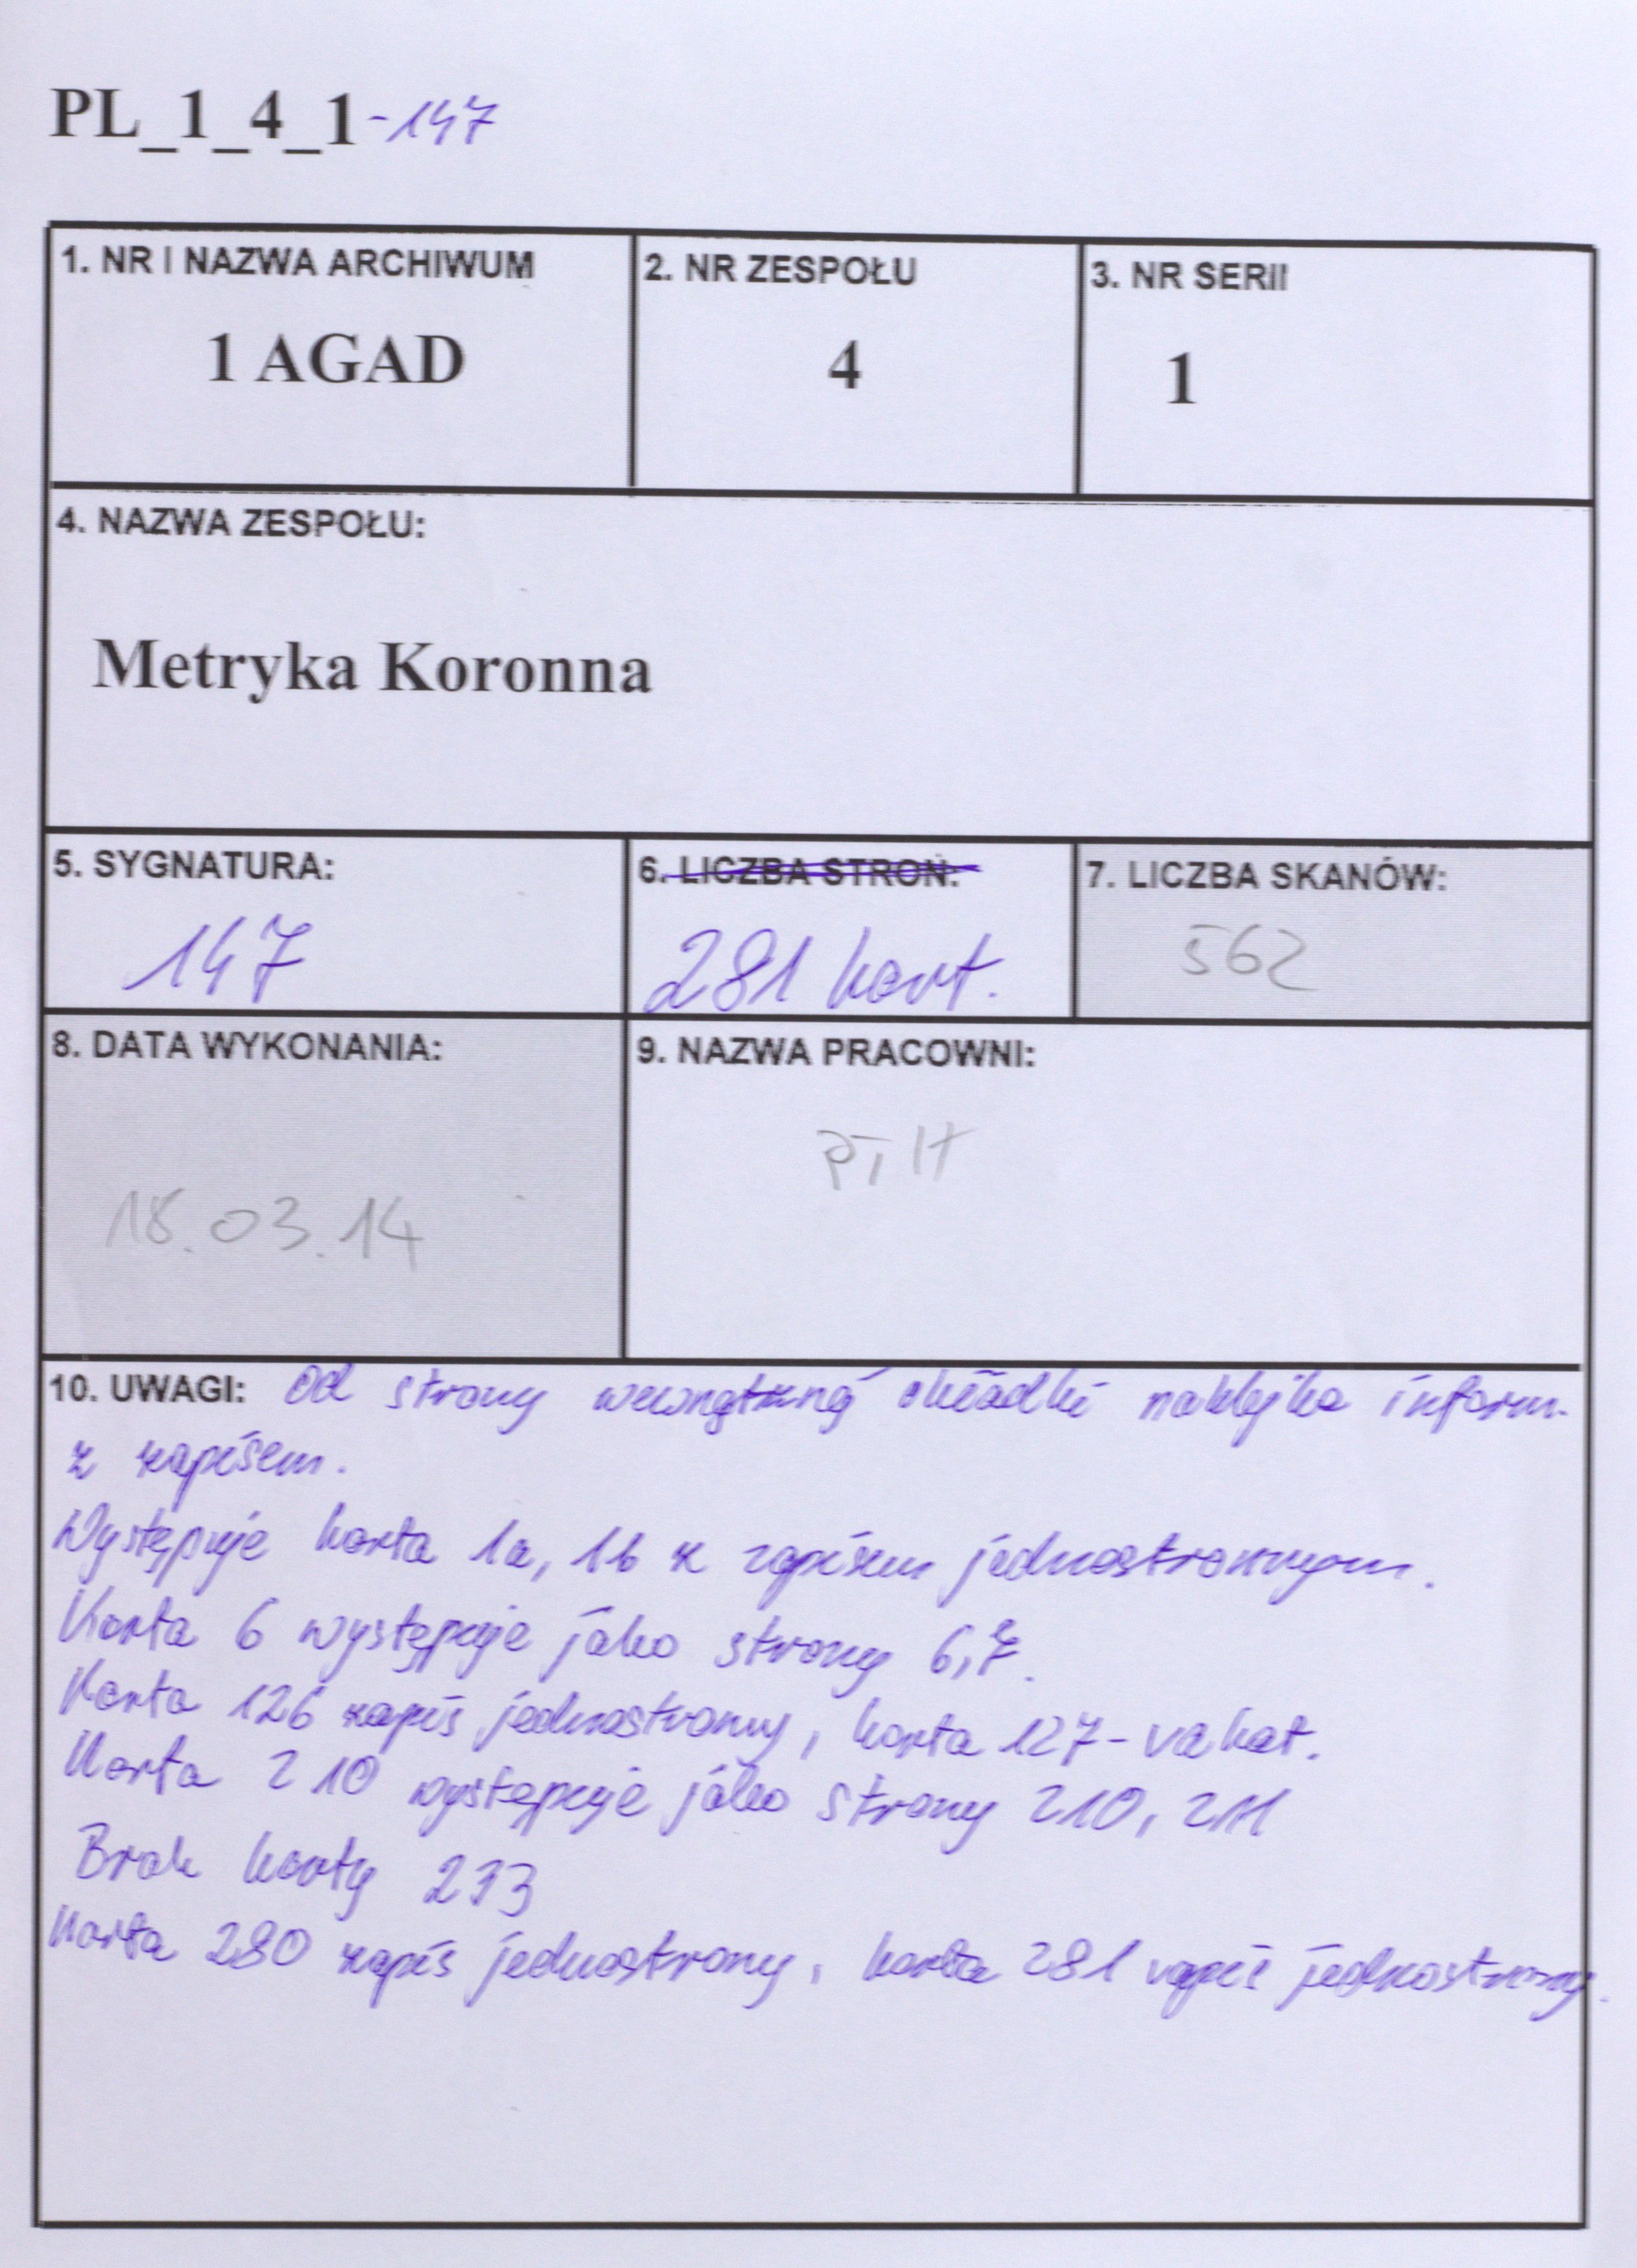 PL_1_4_1-147
1. NR I NAZWA ARCHIWUM
1 AGAD
2. NR ZESPOŁU
4
3. NR SERII
1
4. NAZWA ZESPOŁU:
Metryka Koronna
5. SYGNATURA:
147
6. LICZBA STRON:
281 kart.
7. LICZBA SKANÓW:
562
8. DATA WYKONANIA:
18.03.14
9. NAZWA PRACOWNI:
10. UWAGI: Od strony wewnątrznej okładki naklejka inform.
z zapisem.
Występuje karta 1a, 1b z zapisem jednostronnym.
Karta 6 występuje jako strony 6,7.
Karta 126 zapis jednostrony, karta 127 - vakat.
Karta 210 występuje jako strony 210, 211
Brak karty 233
Karta 280 zapis jednostrony, karta 281 zapis jednostrony.